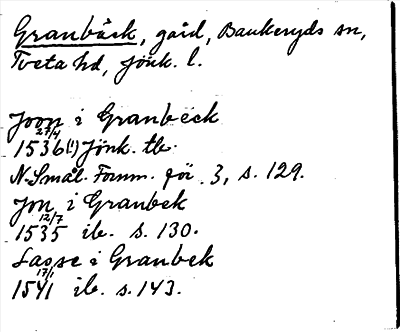 Granbäck, gård, Bankeryds sn,
Tveta hd, Jönk. l.
Joon i Granbeck
27/4
1536(!) Jönk. tb.
N. Smål. Fornm. för. 3, s. 129.
Jon i Granbek
12/7
1535 ib. s. 130.
Lasse i Granbek
17/1
1541 ib. s. 143.